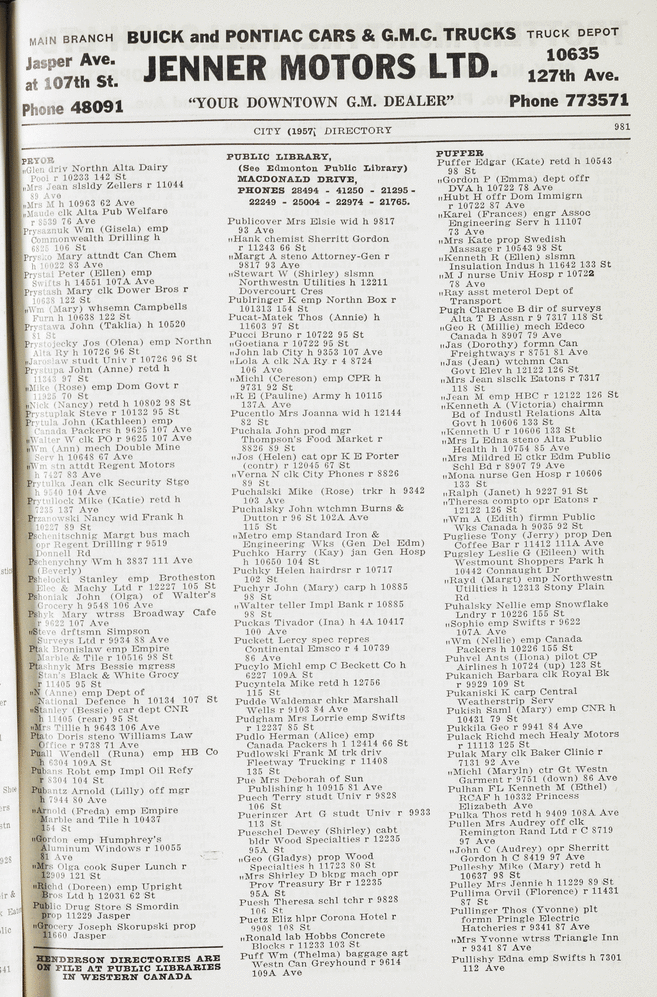 MAIN BRANCH
Jasper Ave.
at 107th St.
Phone 48091
BUICK and PONTIAC CARS & G.M.C. TRUCKS
JENNER MOTORS LTD.
"YOUR DOWNTOWN G.M. DEALER"
TRUCK DEPOT
10635
127th Ave.
Phone 773571
CITY (1957) DIRECTORY
981
PRYOR
„Glen driv Northn Alta Dairy
Pool r 10233 142 St
„Mrs Jean slsldy Zellers r 11044
89 Ave
„Mrs M h 10963 62 Ave
„Maude clk Alta Pub Welfare
r 8539 76 Ave
Prysaznuk Wm (Gisela) emp
Commonwealth Drilling h
6825 106 St
Prysko Mary attndt Can Chem
h 10022 83 Ave
Prystai Peter (Ellen) emp
Swifts h 14551 107A Ave
Prystash Mary clk Dower Bros r
10638 122 St
„Wm (Mary) whsemn Campbells
Furn h 10638 122 St
Prystawa John (Taklia) h 10520
81 St
Prystojecky Jos (Olena) emp Northn
Alta Ry h 10726 96 St
„Jaroslaw studt Univ r 10726 96 St
Prystupa John (Anne) retd h
11343 97 St
„Mike (Rose) emp Dom Govt r
11925 70 St
„Nick (Nancy) retd h 10802 98 St
Prystuplak Steve r 10132 95 St
Prytula John (Kathleen) emp
Canada Packers h 9625 107 Ave
„Walter W clk PO r 9625 107 Ave
„Wm (Ann) mech Double Mine
Serv h 10648 67 Ave
„Wm stn attdt Regent Motors
h 7427 83 Ave
Prytulka Jean clk Security Stge
h 9540 104 Ave
Prytullock Mike (Katie) retd h
7235 137 Ave
Przanowski Nancy wid Frank h
10227 89 St
Pschenitschnig Margt bus mach
opr Regent Drilling r 9519
Donnell Rd
Pschenychny Wm h 3837 111 Ave
(Beverly)
Pshelocki Stanley emp Brotheston
Elec & Machy Ltd r 12227 105 St
Pshoniak John (Olga) of Walter's
Grocery h 9548 106 Ave
Pshyk Mary wtrss Broadway Cafe
r 9622 107 Ave
„Steve drftsmn Simpson
Surveys Ltd r 9934 88 Ave
Ptak Bronislaw emp Empire
Marble & Tile r 10516 98 St
Ptashnyk Mrs Bessie mgress
Stan's Black & White Grocy
r 11405 95 St
„N (Anne) emp Dept of
National Defence h 10134 107 St
„Stanley (Bessie) car dept CNR
h 11405 (rear) 95 St
„Mrs Tillie h 9643 106 Ave
Ptato Doris steno Williams Law
Office r 9738 71 Ave
Puall Wendell (Runa) emp HB Co
h 6304 109A St
Pubans Robt emp Impl Oil Refy
r 8304 104 St
Pubantz Arnold (Lilly) off mgr
h 7944 80 Ave
„Arnold (Freda) emp Empire
Marble and Tile h 10437
154 St
„Gordon emp Humphrey's
Aluminum Windows r 10055
81 Ave
„Mrs Olga cook Super Lunch r
12909 121 St
„Richd (Doreen) emp Upright
Bros Ltd h 12031 62 St
Public Drug Store S Smordin
prop 11229 Jasper
„Grocery Joseph Skorupski prop
11660 Jasper
HENDERSON DIRECTORIES ARE
ON FILE AT PUBLIC LIBRARIES
IN WESTERN CANADA
PUBLIC LIBRARY,
(See Edmonton Public Library)
MACDONALD DRIVE,
PHONES 28494 - 41250 - 21295 -
22249 - 25004 - 22974 - 21765.
Publicover Mrs Elsie wid h 9817
93 Ave
„Hank chemist Sherritt Gordon
r 11243 66 St
„Margt A steno Attorney-Gen r
9817 93 Ave
„Stewart W (Shirley) slsmn
Northwestn Utilities h 12211
Dovercourt Cres
Publringer K emp Northn Box r
101313 154 St
Pucat-Matek Thos (Annie) h
11603 97 St
Pucci Bruno r 10722 95 St
„Goetiana r 10722 95 St
„John lab City h 9353 107 Ave
„Lola A clk NA Ry r 4 8724
106 Ave
„Michl (Cereson) emp CPR h
9731 92 St
„R E (Pauline) Army h 10115
137A Ave
Pucentlo Mrs Joanna wid h 12144
82 St
Puchala John prod mgr
Thompson's Food Market r
8826 89 St
„Jos (Helen) cat opr K E Porter
(contr) r 12045 67 St
„Verna N clk City Phones r 8826
89 St
Puchalski Mike (Rose) trkr h 9342
103 Ave
Puchalsky John wtchmn Burns &
Dutton r 96 St 102A Ave
115 St
„Metro emp Standard Iron &
Engineering Wks (Gen Del Edm)
Puchko Harry (Kay) jan Gen Hosp
h 10650 104 St
Puchky Helen hairdrsr r 10717
102 St
Puchyr John (Mary) carp h 10885
98 St
„Walter teller Impl Bank r 10885
98 St
Puckas Tivador (Ina) h 4A 10417
100 Ave
Puckett Lercy spec repres
Continental Emsco r 4 10739
86 Ave
Pucylo Michl emp C Beckett Co h
6227 109A St
Pucyntela Mike retd h 12756
115 St
Pudde Waldemar chkr Marshall
Wells r 9103 84 Ave
Pudgham Mrs Lorrie emp Swifts
r 12237 85 St
Pudlo Herman (Alice) emp
Canada Packers h 1 12414 66 St
Pudlowski Frank M trk driv
Fleetway Trucking r 11408
135 St
Pue Mrs Deborah of Sun
Publishing h 10915 81 Ave
Puech Terry studt Univ r 9828
106 St
Pueringer Art G studt Univ r 9933
113 St
Pueschel Dewey (Shirley) cabt
bldr Wood Specialties r 12235
95A St
„Geo (Gladys) prop Wood
Specialties h 11723 80 St
„Mrs Shirley D bkpg mach opr
Prov Treasury Br r 12235
95A St
Puesh Theresa schl tchr r 9828
106 St
Puetz Eliz hlpr Corona Hotel r
9908 108 St
„Ronald lab Hobbs Concrete
Blocks r 11233 103 St
Puff Wm (Thelma) baggage agt
Westn Can Greyhound r 9614
109A Ave
PUFFER
Puffer Edgar (Kate) retd h 10543
98 St
„Gordon P (Emma) dept offr
DVA h 10722 78 Ave
„Hubt H offr Dom Immigrn
r 10722 87 Ave
„Karel (Frances) engr Assoc
Engineering Serv h 11107
73 Ave
„Mrs Kate prop Swedish
Massage r 10543 98 St
„Kenneth R (Ellen) slsmn
Insulation Indus h 11642 133 St
„M J nurse Univ Hosp r 10722
78 Ave
„Ray asst meterol Dept of
Transport
Pugh Clarence B dir of surveys
Alta T B Assn r 9 7317 118 St
„Geo R (Millie) mech Edeco
Canada h 8907 79 Ave
„Jas (Dorothy) formn Can
Freightways r 8751 81 Ave
„Jas (Jean) wtchmn Can
Govt Elev h 12122 126 St
„Mrs Jean slsclk Eatons r 7317
118 St
„Jean M emp HBC r 12122 126 St
„Kenneth A (Victoria) chairmn
Bd of Industl Relations Alta
Govt h 10606 133 St
„Kenneth U r 10606 133 St
„Mrs L Edna steno Alta Public
Health h 10754 85 Ave
„Mrs Mildred E ctkr Edm Public
Schl Bd r 8907 79 Ave
„Mona nurse Gen Hosp r 10606
133 St
„Ralph (Janet) h 9227 91 St
„Theresa compto opr Eatons r
12122 126 St
„Wm A (Edith) firmn Public
Wks Canada h 9035 92 St
Pugliese Tony (Jerry) prop Den
Coffee Bar r 11412 111A Ave
Pugsley Leslie G (Eileen) with
Westmount Shoppers Park h
10442 Connaught Dr
„Rayd (Margt) emp Northwestn
Utilities h 12313 Stony Plain
Rd
Puhalsky Nellie emp Snowflake
Lndry r 10226 155 St
„Sophie emp Swifts r 9622
107A Ave
„Wm (Nellie) emp Canada
Packers h 10226 155 St
Puhvel Ants (Ilona) pilot CP
Airlines h 10724 (up) 123 St
Pukanich Barbara clk Royal Bk
r 9929 109 St
Pukaniski K carp Central
Weatherstrip Serv
Pukish Saml (Mary) emp CNR h
10431 79 St
Pukkila Geo r 9941 84 Ave
Pulack Richd mech Healy Motors
r 11113 125 St
Pulak Mary clk Baker Clinic r
7131 92 Ave
„Michl (Maryln) ctr Gt Westn
Garment r 9751 (down) 86 Ave
Pulhan FL Kenneth M (Ethel)
RCAF h 10332 Princess
Elizabeth Ave
Pulka Thos retd h 9409 108A Ave
Pullen Mrs Audrey off clk
Remington Rand Ltd r C 8719
97 Ave
„John C (Audrey) opr Sherritt
Gordon h C 8419 97 Ave
Pulleshy Mike (Mary) retd h
10637 98 St
Pulley Mrs Jennie h 11229 89 St
Pullima Orvil (Florence) r 11431
87 St
Pullinger Thos (Yvonne) plt
formn Pringle Electric
Hatcheries r 9341 87 Ave
„Mrs Yvonne wtrss Triangle Inn
r 9341 87 Ave
Pullishy Edna emp Swifts h 7301
112 Ave